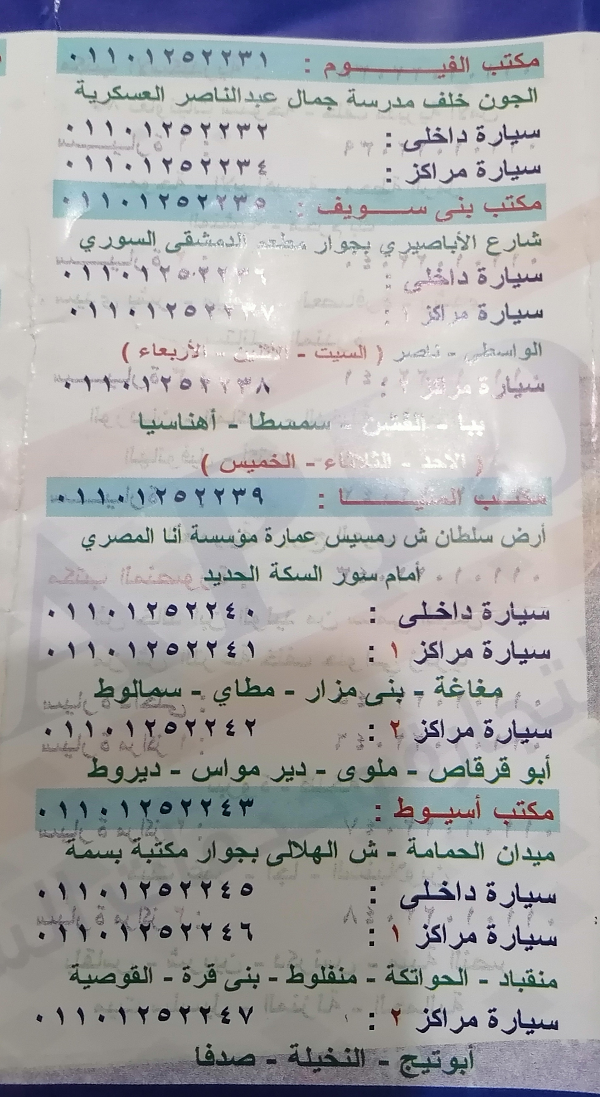 مكتب الفيـــــوم : ٠١١٠١٢٥٢٢٣١
الجون خلف مدرسة جمال عبدالناصر العسكرية
سيارة داخلى : ٠١١٠١٢٥٢٢٣٢
سيارة مراكز : ٠١١٠١٢٥٢٢٣٤
مكتب بنى ســـويف : ٠١١٠١٢٥٢٢٣٥
شارع الأباصيري بجوار مطعم الدمشقى السوري
سيارة داخلى : ٠١١٠١٢٥٢٢٣٦
سيارة مراكز ١ : ٠١١٠١٢٥٢٢٣٧
الواسطى - ناصر ( السبت - الأثنين - الأربعاء )
سيارة مراكز ٢ : ٠١١٠١٢٥٢٢٣٨
ببا - الفشن - سمسطا - أهناسيا
( الاحد - الثلاثاء - الخميس )
مكتب المنيـــــا : ٠١١٠١٢٥٢٢٣٩
أرض سلطان ش رمسيس عمارة مؤسسة أنا المصري
أمام سور السكة الحديد
سيارة داخلى : ٠١١٠١٢٥٢٢٤٠
سيارة مراكز ١ : ٠١١٠١٢٥٢٢٤١
مغاغة - بنى مزار - مطاي - سمالوط
سيارة مراكز ٢ : ٠١١٠١٢٥٢٢٤٢
أبو قرقاص - ملوى - دير مواس - ديروط
مكتب أسيــوط : ٠١١٠١٢٥٢٢٤٣
ميدان الحمامة - ش الهلالى بجوار مكتبة بسمة
سيارة داخلى : ٠١١٠١٢٥٢٢٤٥
سيارة مراكز ١ : ٠١١٠١٢٥٢٢٤٦
منقباد - الحواتكة - منفلوط - بنى قرة - القوصية
سيارة مراكز ٢ : ٠١١٠١٢٥٢٢٤٧
أبوتيج - النخيلة - صدفا